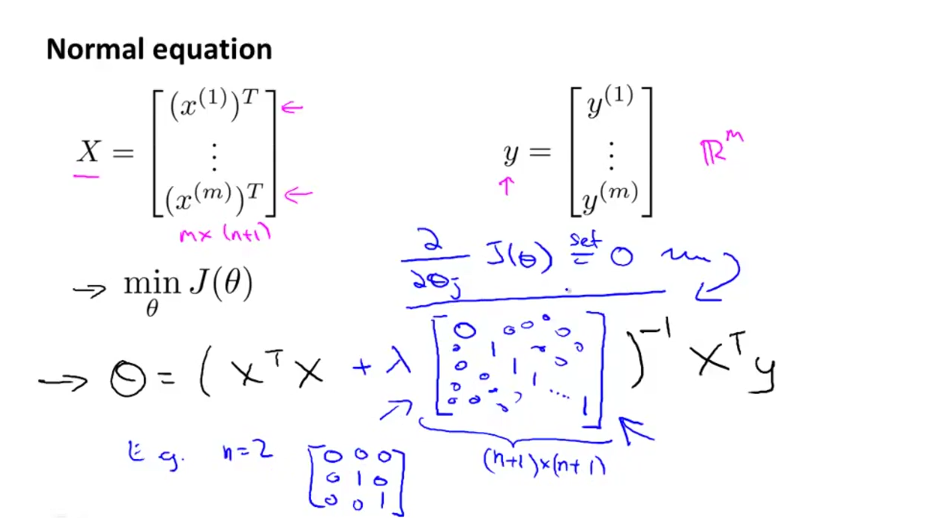 Normal equation
X = [ (x^(1))^T ⋮ (x^(m))^T ] ←  y = [ y^(1) ⋮ y^(m) ] ℝ^m
m × (n+1)
∂/∂θj J(θ) set = 0
→ min_θ J(θ)
→ θ = ( X^T X + λ [ 0 1 1 1 ⋱ 1 ] )^-1 X^T y
(n+1)×(n+1)
E.g. n=2 [ 0 0 0
0 1 0
0 0 1 ]